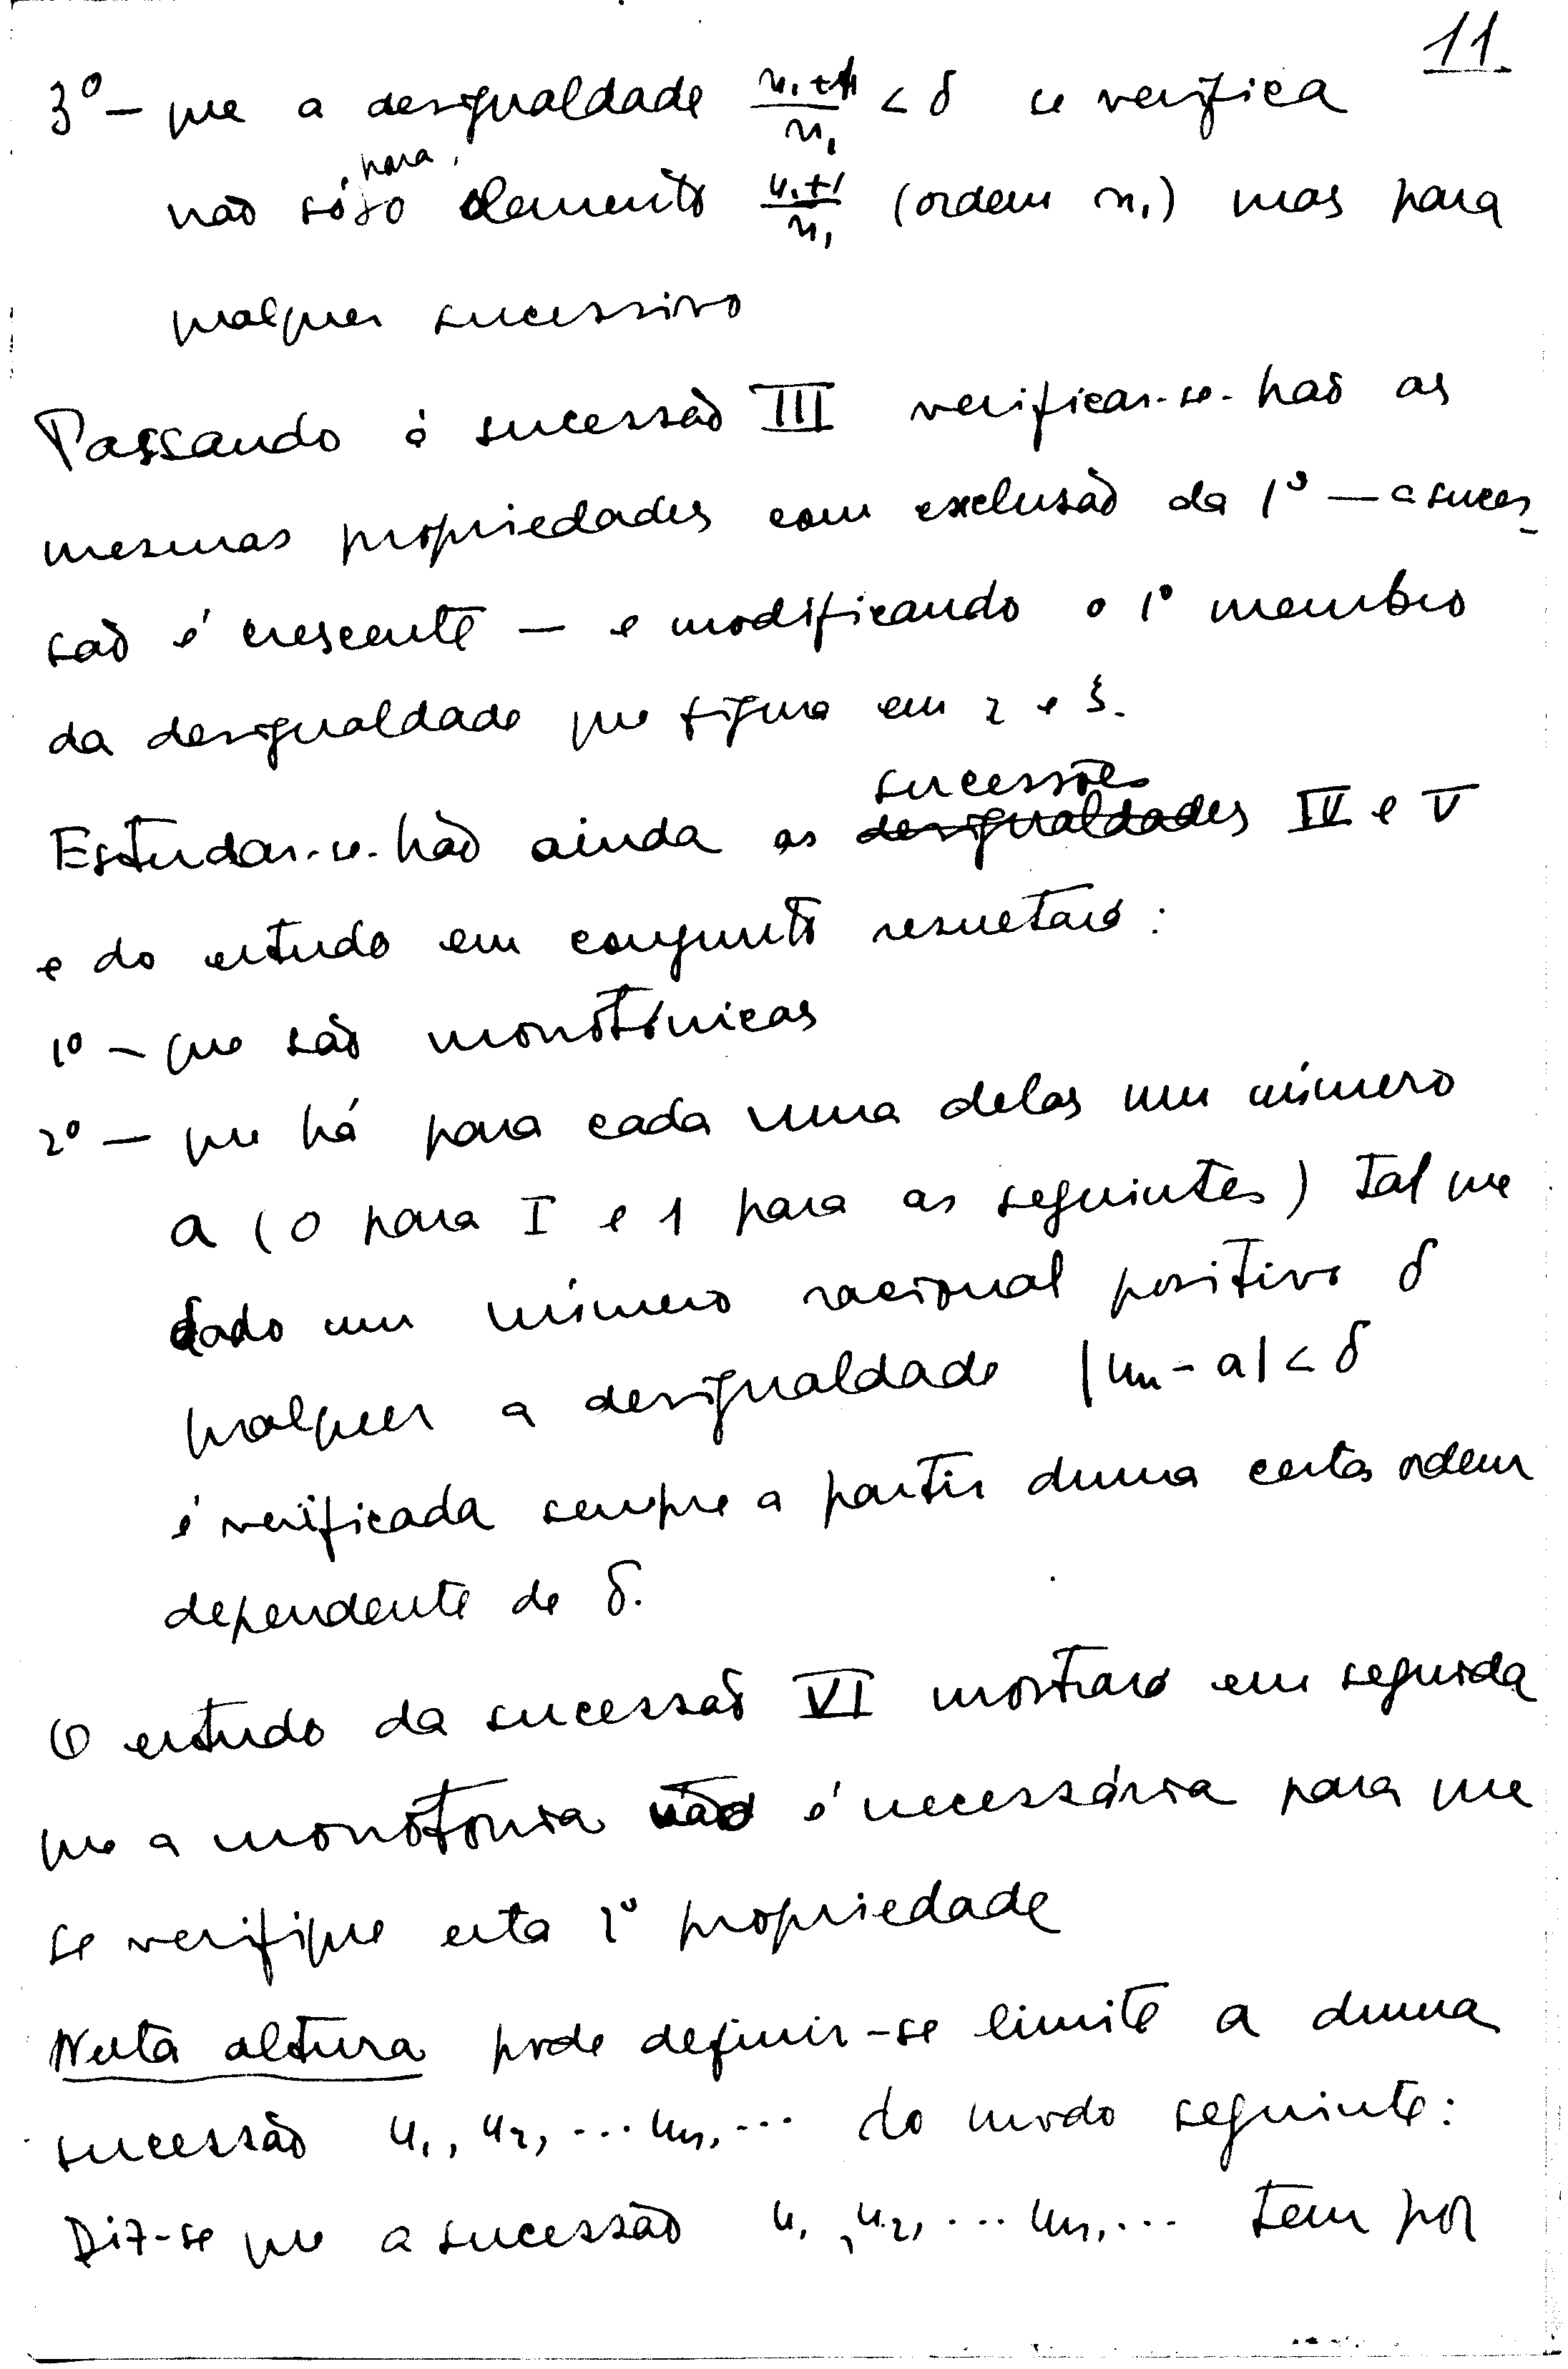 11.
3º – que a desigualdade (n₁+1)/n₁ < δ se verifica
não só para o elemento (n₁+1)/n₁ (ordem n₁) mas para
qualquer sucessivo
Passando à sucessão III verificar-se-hão as
mesmas propriedades com exclusão da 1ª — a suces-
são é crescente — e modificando o 1º membro
da desigualdade que figura em 2 e 3.
Estudar-se-hão ainda as ~~desigualdades~~ sucessões IV e V
e do estudo em conjunto resultará:
1º – que são monotónicas
2º — que há para cada uma delas um número
a (0 para I e 1 para as seguintes) tal que
dado um número racional positivo δ
qualquer a desigualdade |uₙ - a| < δ
é verificada sempre a partir duma certa ordem
dependente de δ.
O estudo da sucessão VI mostrará em seguida
que a monotonia não é necessária para que
se verifique esta 2ª propriedade
Nesta altura pode definir-se limite a duma
sucessão u₁, u₂, ... uₙ, ... do modo seguinte:
Diz-se que a sucessão u₁, u₂, ... uₙ, ... tem por